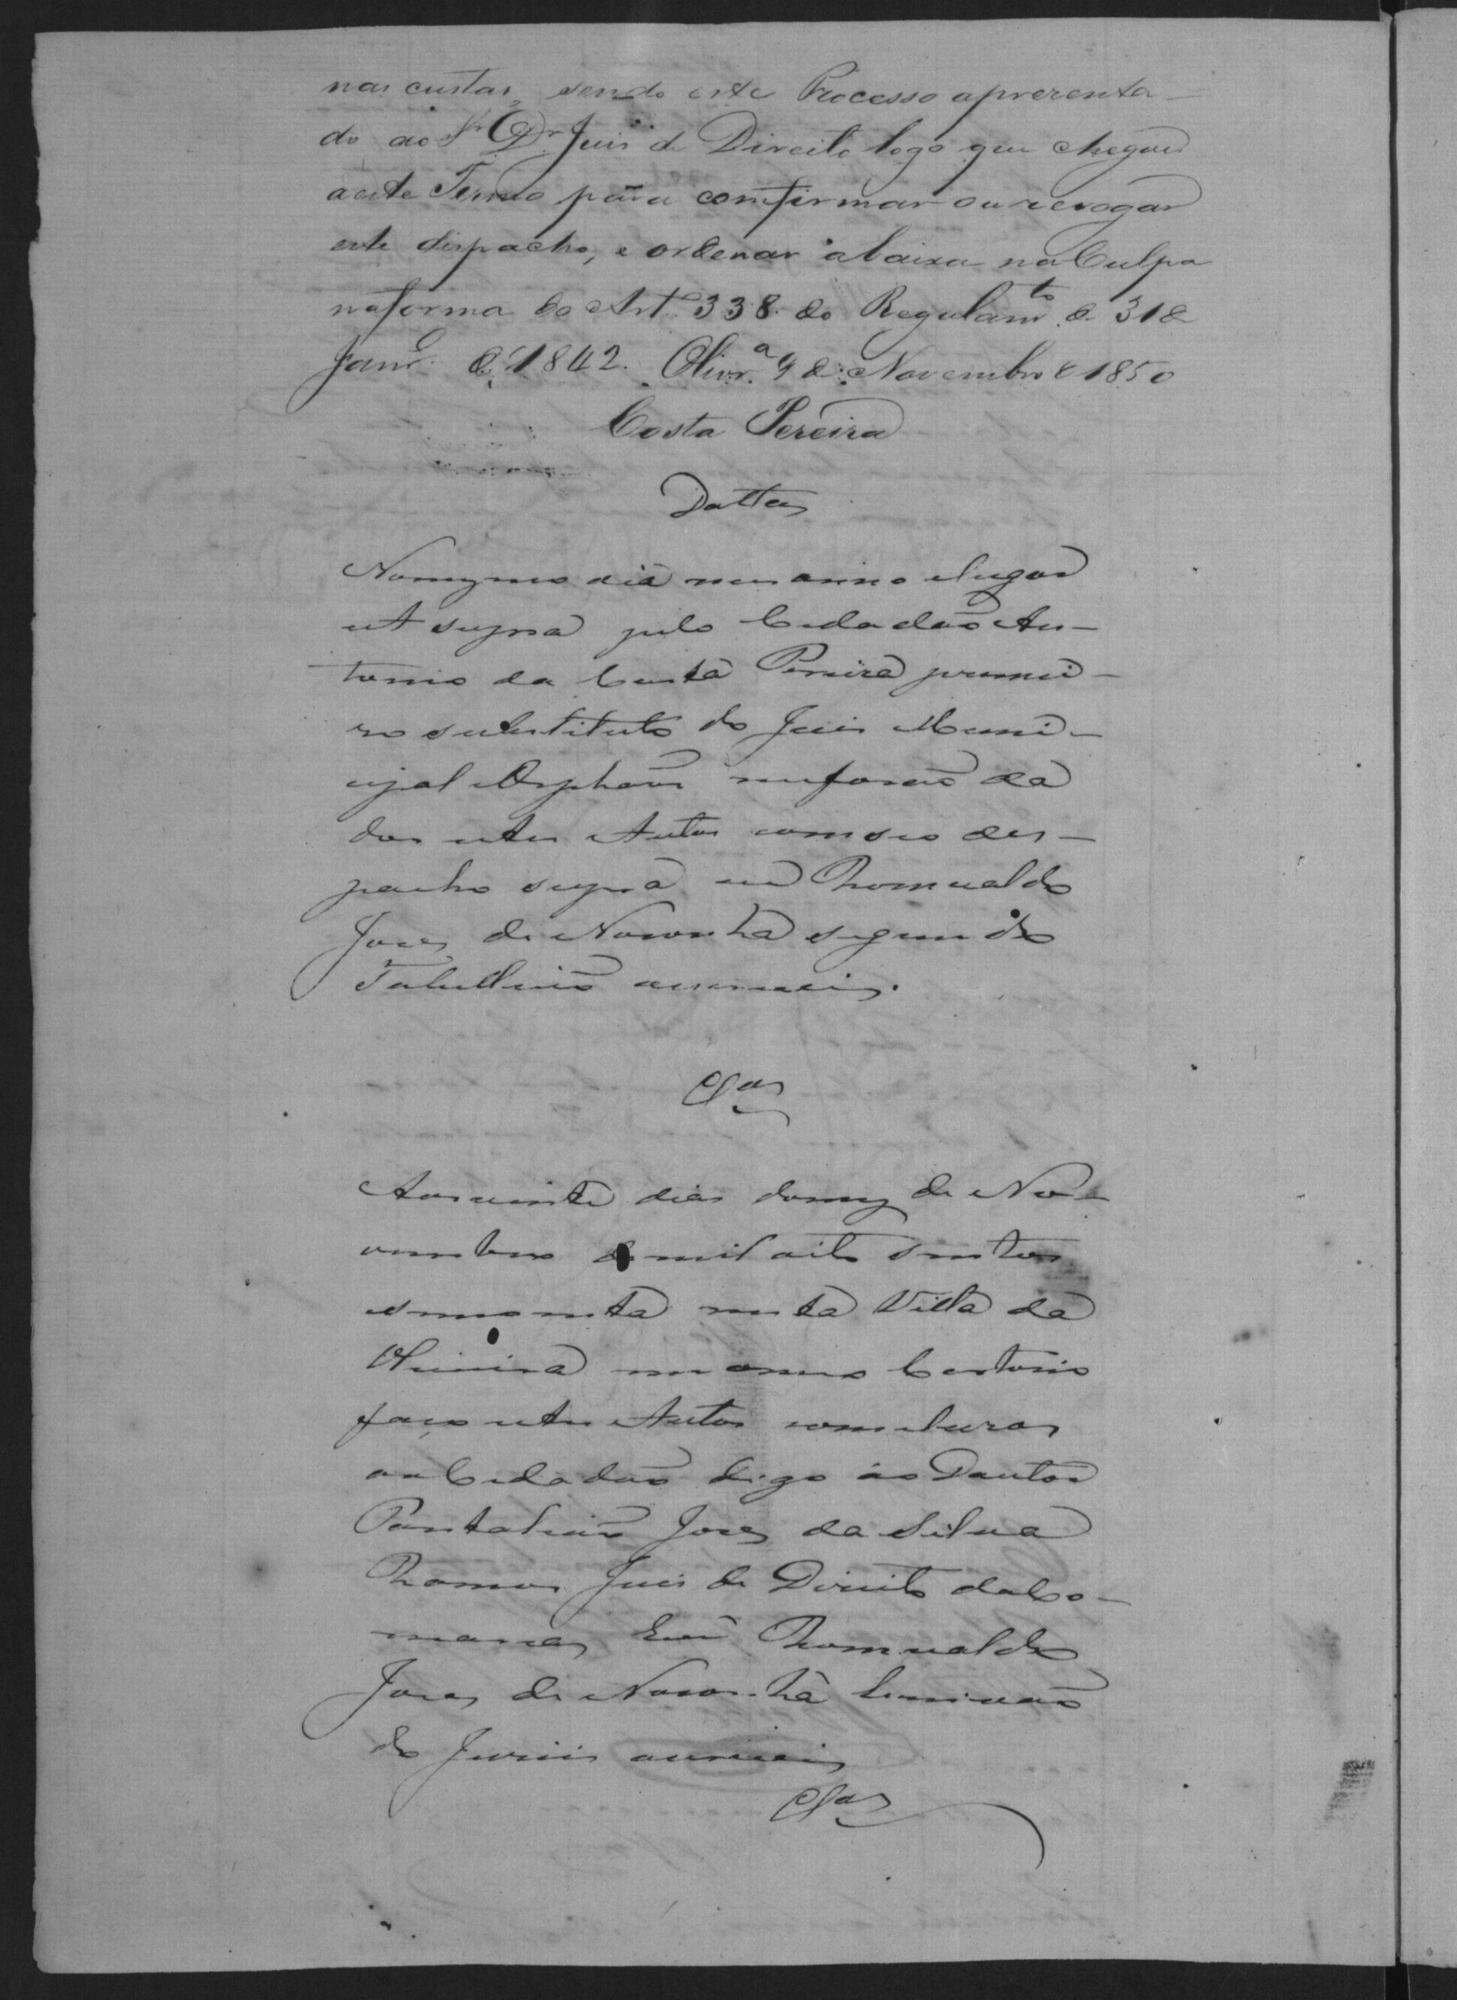 nas custas, sendo este Processo aprezenta-
do ao Sr. Dr. Juis de Direito logo que chegar
a este Termo para comfirmar ou revogar
este dispacho, e ordenar a baixa na Culpa
na forma do Art. 338 do Regulamto. de 31 de
Janro. de 1842. Olivra. 9 de Novembro de 1850
Costa Pereira
Datta
No mesmo dia mes anno e lugar
ut supra pelo Cidadaõ An-
tonio da Costa Pereira primei-
ro substituto do Juis Muni-
cipal e Orphaõs me foraõ da
dos estes Autos com seo des-
pacho supra eu Romualdo
Joze de Noronha segundo
Tabelliaõ escrevi.
Clas
Aos vinte dias do mez de No-
vembro de mil oito centos
e sincoenta nesta Villa da
Oliveira em o meu Cartorio
faço estes Autos comcluzos
ao Cidadaõ digo ao Doutor
Pantaliaõ Joze da Silva
Ramos Juis de Direito da Co-
marca, Eu Romualdo
Joze de Noronha Escrivaõ
do Juri escrevi
Clas